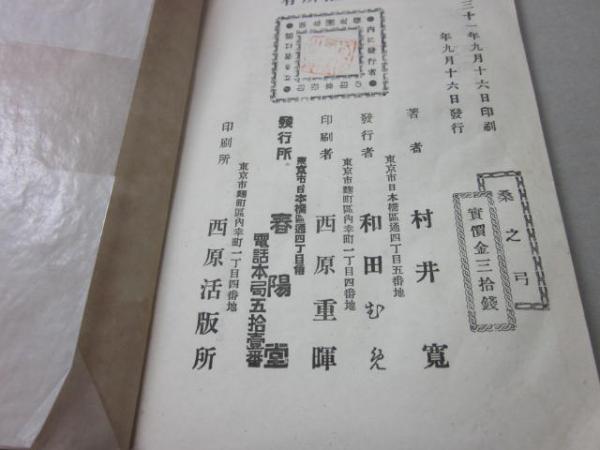 桑之弓
實價金三拾錢
三十一年九月十六日印刷
年九月十六日發行
著者 村井寬
東京市日本橋區通四丁目五番地
發行者 和田むめ
東京市麴町區內幸町一丁目四番地
印刷者 西原重暉
東京市日本橋區通四丁目角
發行所 春陽堂
電話本局五拾壹番
東京市麴町區內幸町一丁目四番地
印刷所 西原活版所